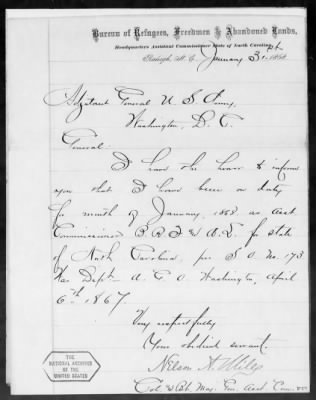 Bureau of Refugees, Freedmen & Abandoned Lands,
Headquarters Assistant Commissioner State of North Carolina,
Raleigh, N. C., January 31st 1868
Adjutant General U. S. Army,
Washington, D. C.
General:
I have the honor to inform
you that I have been on duty
for month of January, 1868 as Asst.
Commissioner B. R. F. & A. L. for state
of North Carolina, per S. O. No. 173
War Dept. A. G. O. Washington, April
6th 1867.
Very respectfully
Your obedient servant.
Nelson A. Miles
Col. & Bt. Maj. Gen. Asst. Com.
THE
NATIONAL ARCHIVES
OF THE
UNITED STATES